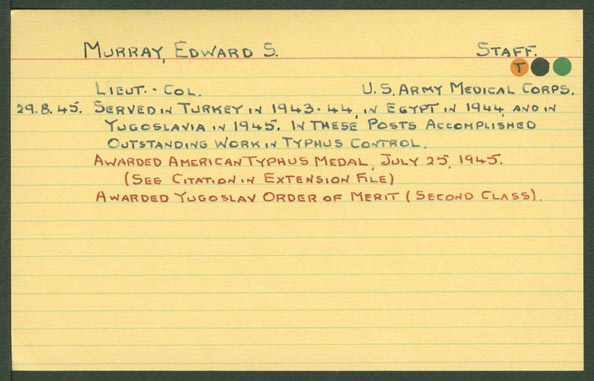 MURRAY, EDWARD S. STAFF.
T
LIEUT.-COL. U.S. ARMY MEDICAL CORPS.
29.8.45. SERVED IN TURKEY IN 1943-44, IN EGYPT IN 1944, AND IN
YUGOSLAVIA IN 1945. IN THESE POSTS ACCOMPLISHED
OUTSTANDING WORK IN TYPHUS CONTROL.
AWARDED AMERICAN TYPHUS MEDAL, JULY 25, 1945.
(SEE CITATION IN EXTENSION FILE)
AWARDED YUGOSLAV ORDER OF MERIT (SECOND CLASS).